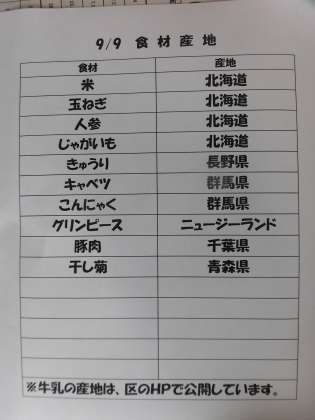 9/9 食材産地
食材 産地
米 北海道
玉ねぎ 北海道
人参 北海道
じゃがいも 北海道
きゅうり 長野県
キャベツ 群馬県
こんにゃく 群馬県
グリンピース ニュージーランド
豚肉 千葉県
干し菊 青森県
※牛乳の産地は、区のHPで公開しています。